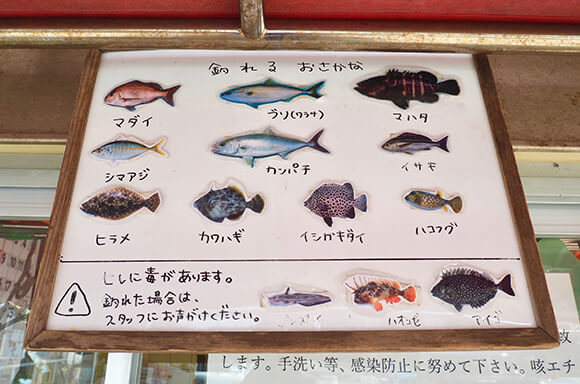 釣れる おさかな
マダイ
ブリ(ワラサ)
マハタ
シマアジ
カンパチ
イサキ
ヒラメ
カワハギ
イシガキダイ
ハコフグ
ヒレに毒があります。
釣れた場合は、
スタッフにお声がけください。
ハオコゼ
アイゴ
します。手洗い等、感染防止に努めて下さい。咳エチ